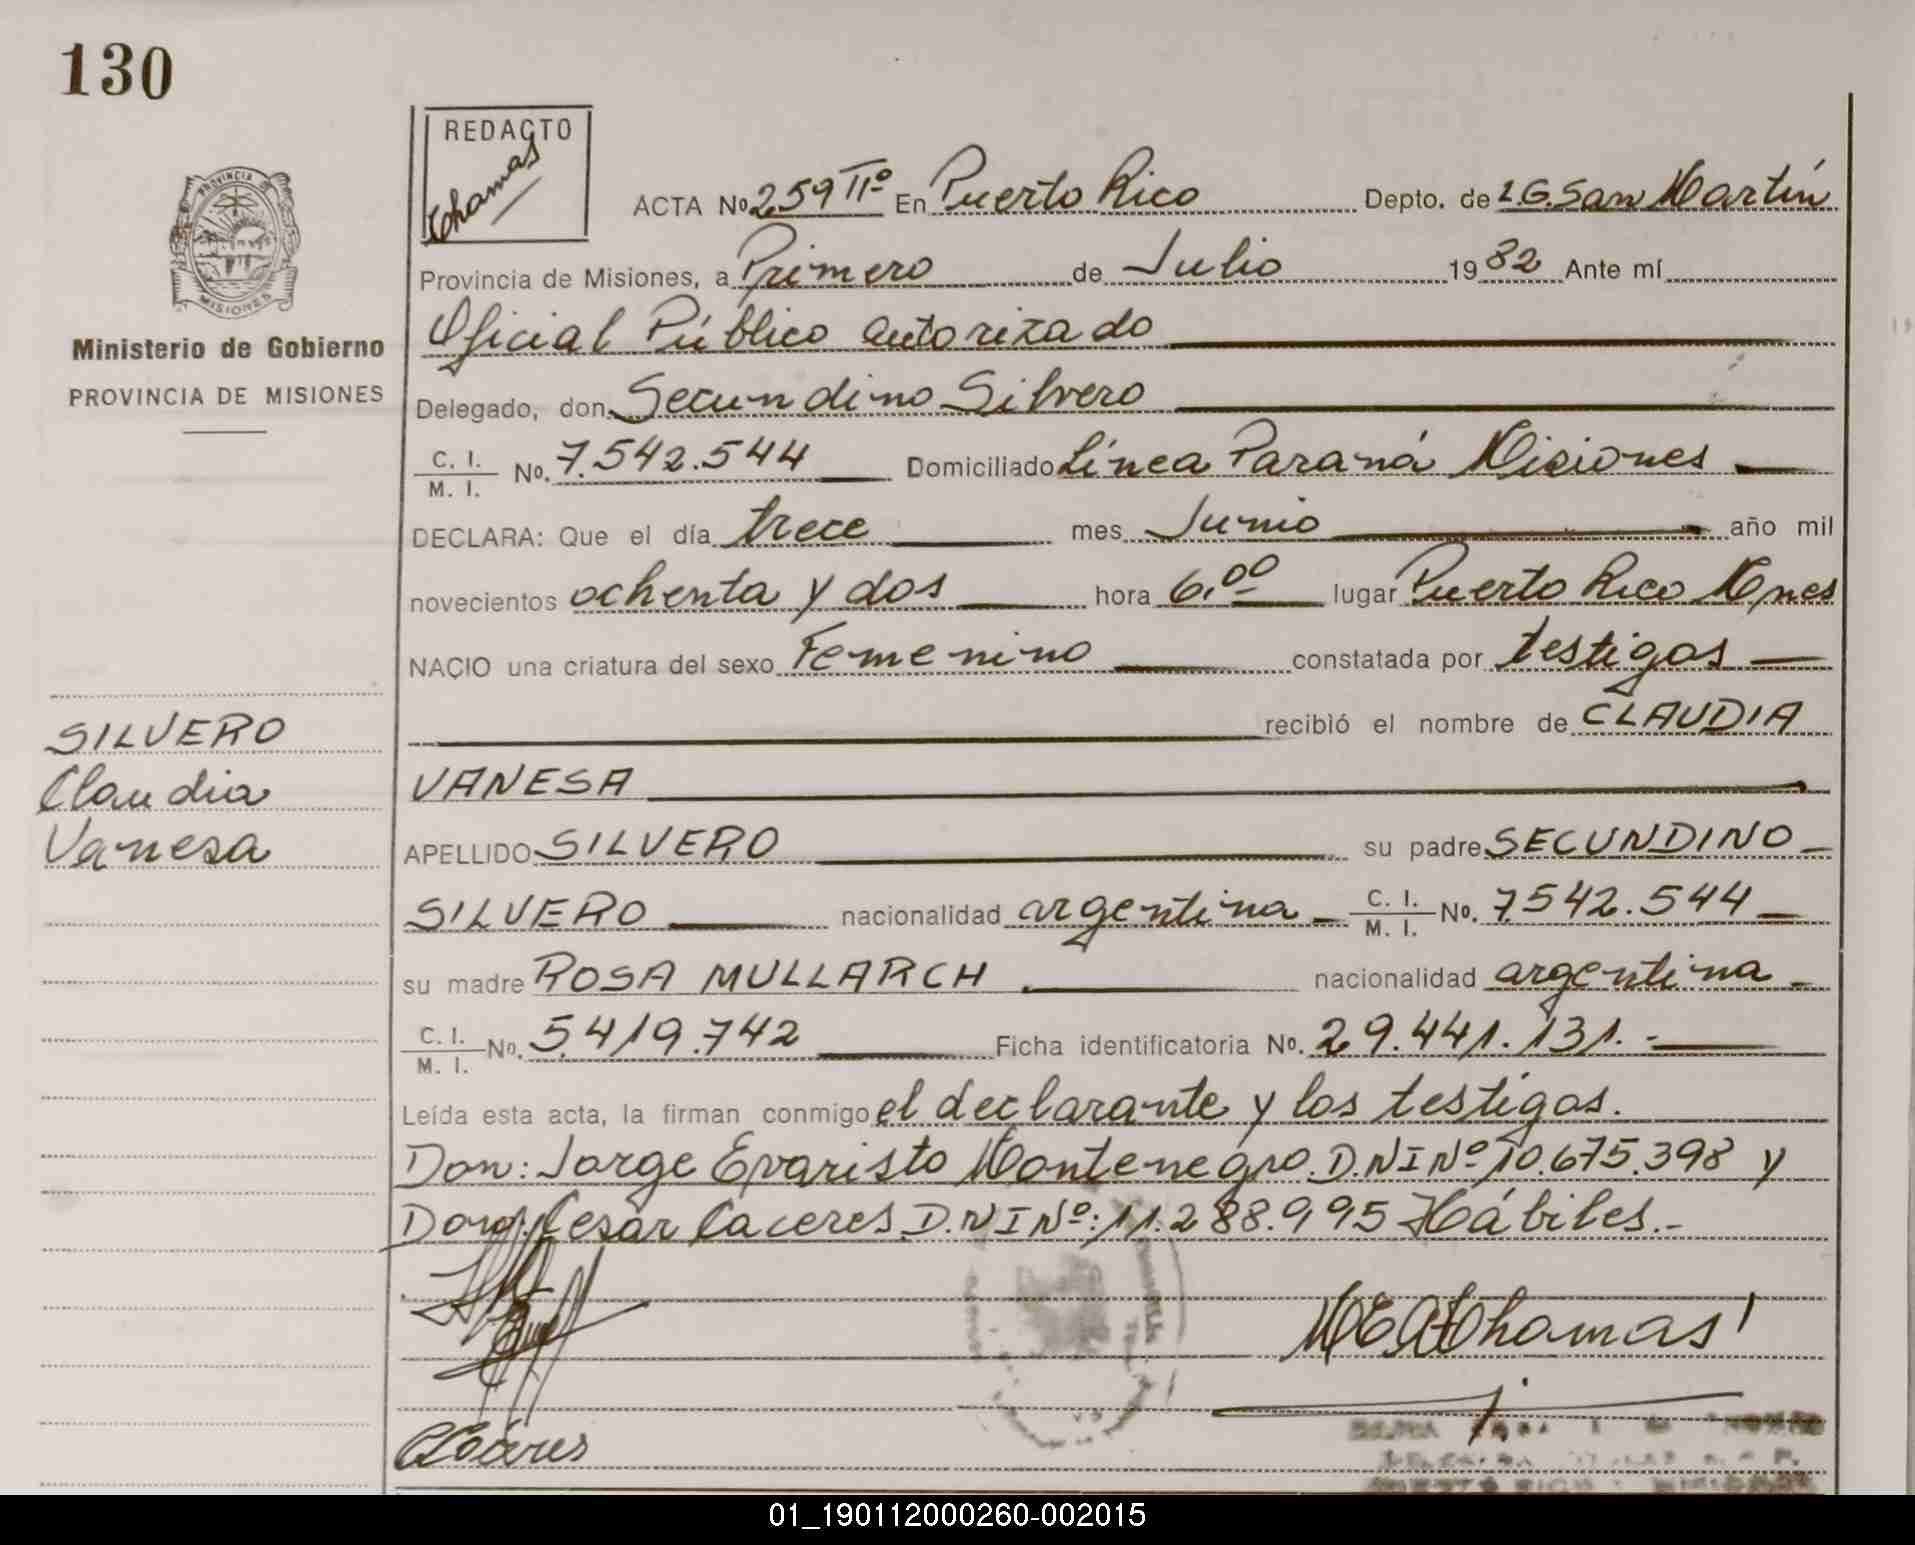 130
REDACTO
Thomas
ACTA No 259 IIº En Puerto Rico Depto. de L.G. San Martín
PROVINCIA DE
MISIONES
Provincia de Misiones, a Primero de Julio 1982 Ante mí
Ministerio de Gobierno
PROVINCIA DE MISIONES
Oficial Público autorizado
Delegado, don Secundino Silvero
C. I. M. I. No. 7.542.544 Domiciliado Línea Paraná Misiones
DECLARA: Que el día trece mes Junio año mil
novecientos ochenta y dos hora 6,00 lugar Puerto Rico Mnes
NACIO una criatura del sexo Femenino constatada por testigos
recibió el nombre de CLAUDIA
VANESA
SILVERO
Claudia
Vanesa
APELLIDO SILVERO su padre SECUNDINO
SILVERO nacionalidad argentina C. I. M. I. No. 7.542.544
su madre ROSA MULLARCH nacionalidad argentina
C. I. M. I. No. 5.419.742 Ficha identificatoria No. 29.441.131.-
Leída esta acta, la firman conmigo el declarante y los testigos.
Don: Jorge Evaristo Montenegro. D.N I Nº 10.675.398 y
Don: Cesar Caceres D.N I Nº: 11.288.995 Hábiles.-
Thomas
CCáceres
01_190112000260-002015